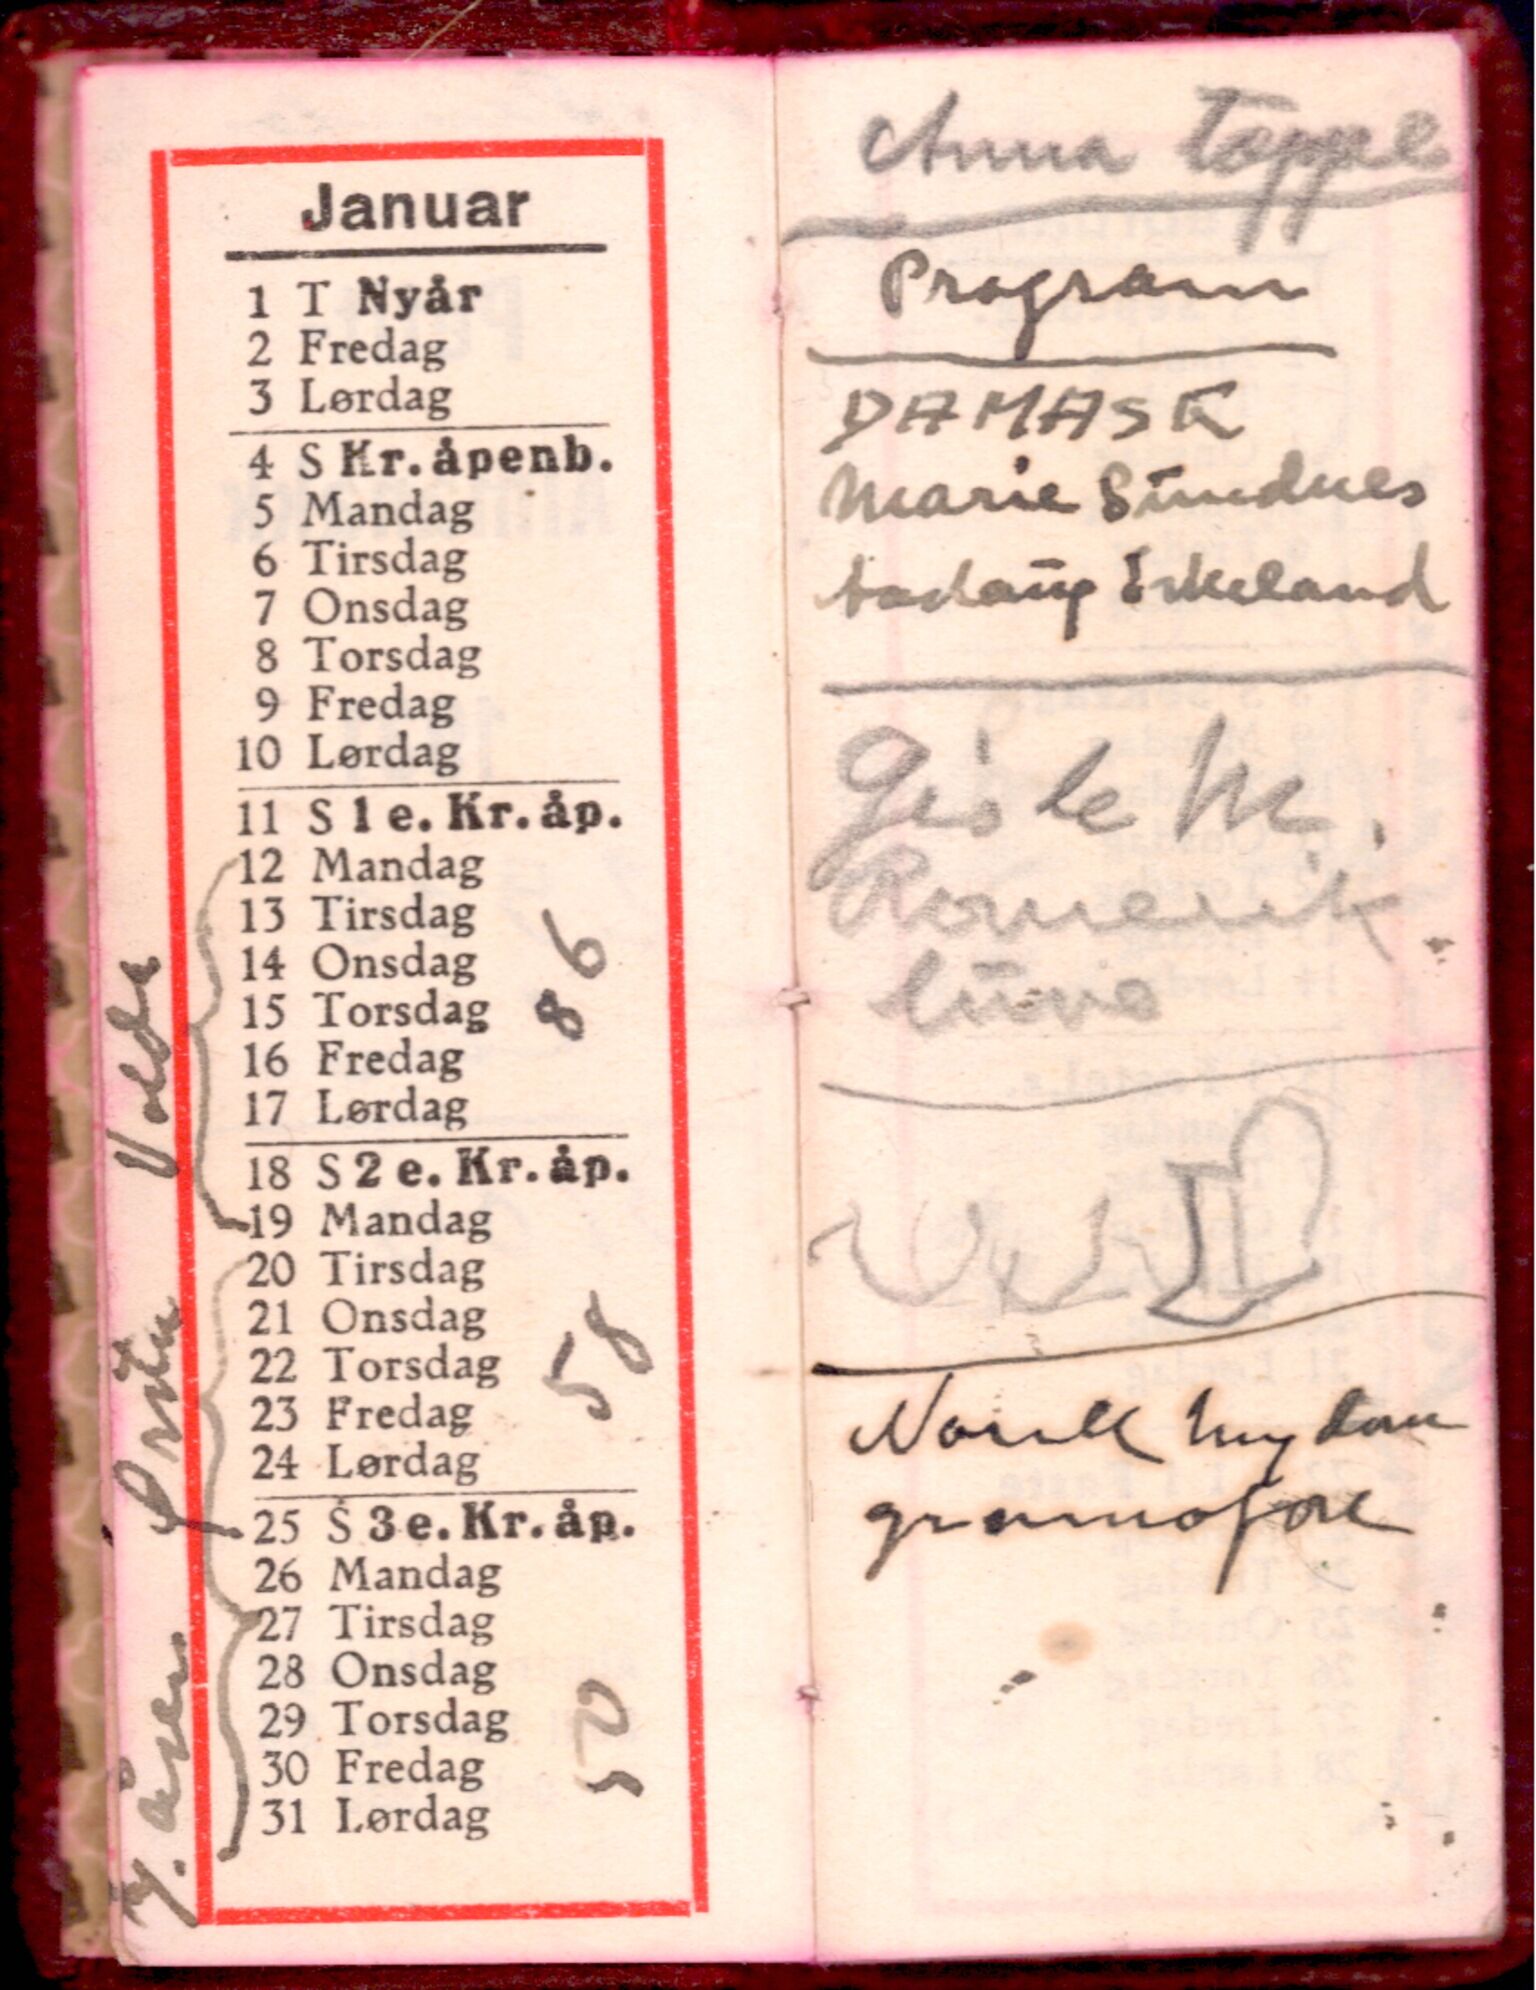 Januar
1 T Nyår
2 Fredag
3 Lørdag
4 S Kr. åpenb.
5 Mandag
6 Tirsdag
7 Onsdag
8 Torsdag
9 Fredag
10 Lørdag
11 S 1 e. Kr. åp.
12 Mandag
13 Tirsdag
14 Onsdag
15 Torsdag
16 Fredag
17 Lørdag
18 S 2 e. Kr. åp.
19 Mandag
20 Tirsdag
21 Onsdag
22 Torsdag
23 Fredag
24 Lørdag
25 S 3 e. Kr. åp.
26 Mandag
27 Tirsdag
28 Onsdag
29 Torsdag
30 Fredag
31 Lørdag
Volda
Ørsta
86
58
50
Anna Toppe
Program
DAMASK
Marie Sundnes
Gisle M.
Romerik
Norsk